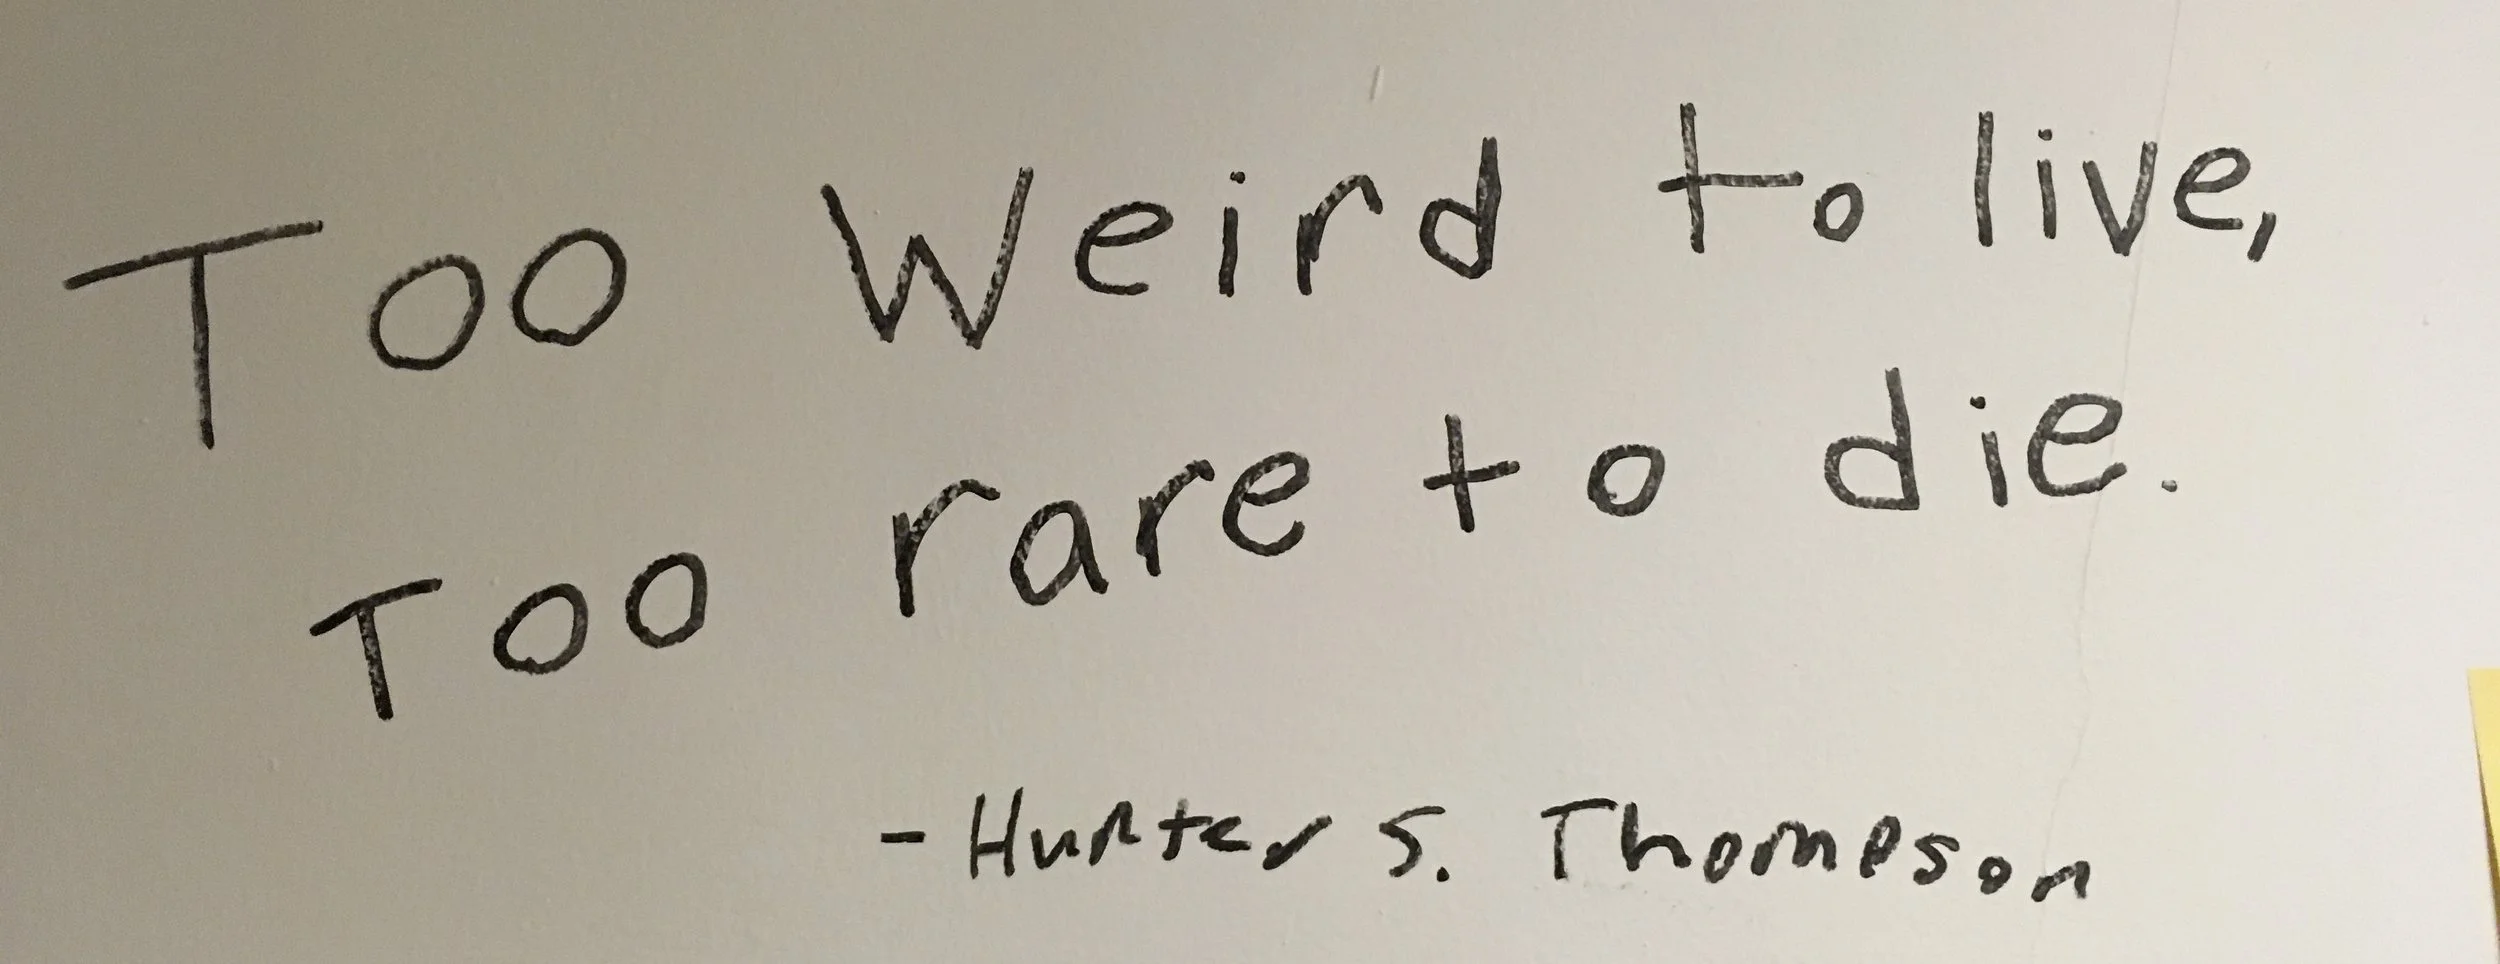 Too Weird to live,
Too rare to die.
- Hunter S. Thompson